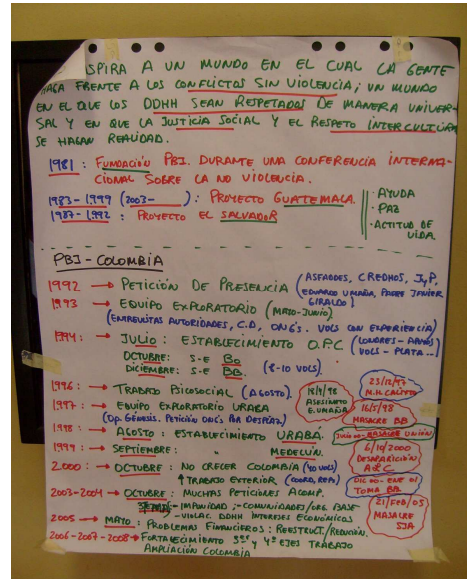 SPIRA A UN MUNDO EN EL CUAL LA GENTE
HAGA FRENTE A LOS CONFLICTOS SIN VIOLENCIA; UN MUNDO
EN EL QUE LOS DDHH SEAN RESPETADOS DE MANERA UNIVER-
SAL Y EN QUE LA JUSTICIA SOCIAL Y EL RESPETO INTERCULTURA
SE HAGAN REALIDAD.
1981: FUNDACIÓN PBI. DURANTE UNA CONFERENCIA INTERNA-
CIONAL SOBRE LA NO VIOLENCIA.
1983-1999 (2003-    ): PROYECTO GUATEMALA.
1987-1992: PROYECTO EL SALVADOR
· AYUDA
· PAZ
· ACTITUD DE
VIDA.
PBI-COLOMBIA
1992 → PETICIÓN DE PRESENCIA (ASFADDES, CREDHOS, JyP.
EDUARDO UMAÑA, PADRE JAVIER
GIRALDO)
1993 → EQUIPO EXPLORATORIO (MAYO-JUNIO).
(ENTREVISTAS AUTORIDADES, C.D, ONG'S. VOLS CON EXPERIENCIA)
1994 → JULIO: ESTABLECIMIENTO O.P.C (LONDRES-
VOLS-PLATA...)
OCTUBRE: S-E Bo
DICIEMBRE: S-E BB. (8-10 VOLS)
1996: → TRABAJO PSICOSOCIAL (AGOSTO).
1997: → EQUIPO EXPLORATORIO URABA
(OP. GÉNESIS. PETICIÓN ONG'S POR DESPLAZ)
1998: → AGOSTO: ESTABLECIMIENTO URABÁ.
1999: → SEPTIEMBRE: " MEDELLÍN.
2000: → OCTUBRE: NO CRECER COLOMBIA (40 VOLS)
↑ TRABAJO EXTERIOR (COORD, REPS)
2003-2004 → OCTUBRE: MUCHAS PETICIONES ACOMP.
- IMPUNIDAD ;- COMUNIDADES/ORG BASE
- VIOLAC. DDHH INTERESES ECONÓMICOS
2005 → MAYO: PROBLEMAS FINANCIEROS: REESTRUCT./REDUCCIÓN.
2006-2007-2008 → FORTALECIMIENTO 3er y 4º EJES TRABAJO
AMPLIACIÓN COLOMBIA
18/4/98
ASESINATO
E. UMAÑA
23/12/97
16/5/98
MASACRE BB
MASACRE UNIÓN
6/10/2000
DESAPARICIÓN
DIC 00-ENE 01
TOMA BB.
21/FEB/05
MASACRE
SJA